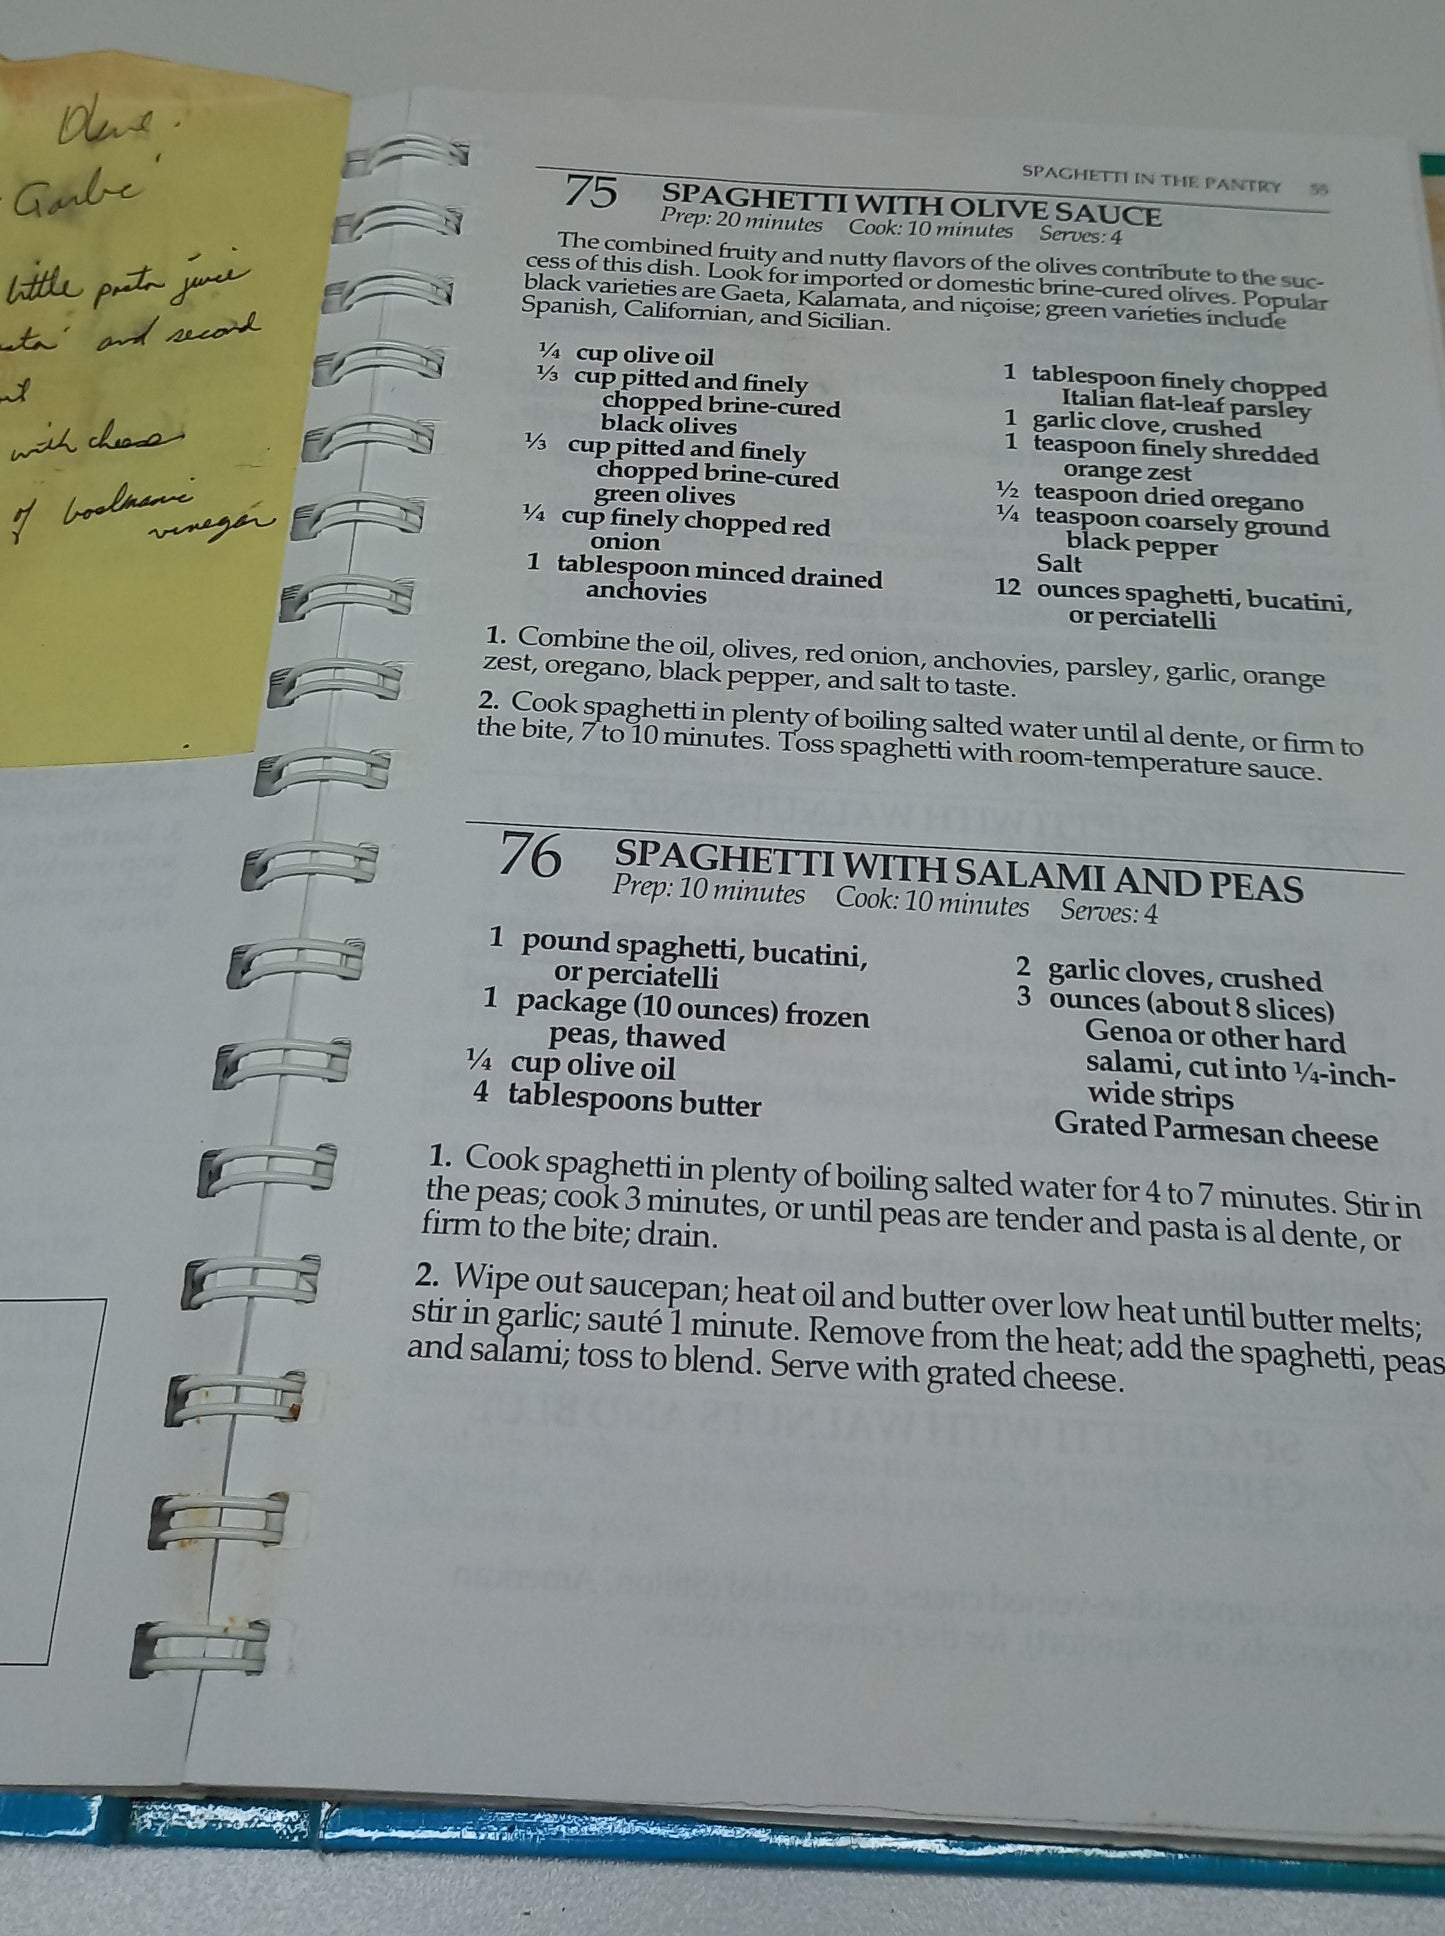 little pasta juice
and second
with cheese
of
vinegar
SPAGHETTI IN THE PANTRY 55
75 SPAGHETTI WITH OLIVE SAUCE
Prep: 20 minutes Cook: 10 minutes Serves: 4
The combined fruity and nutty flavors of the olives contribute to the suc-
cess of this dish. Look for imported or domestic brine-cured olives. Popular
black varieties are Gaeta, Kalamata, and niçoise; green varieties include
Spanish, Californian, and Sicilian.
¼ cup olive oil
⅓ cup pitted and finely
chopped brine-cured
black olives
⅓ cup pitted and finely
chopped brine-cured
green olives
¼ cup finely chopped red
onion
1 tablespoon minced drained
anchovies
1 tablespoon finely chopped
Italian flat-leaf parsley
1 garlic clove, crushed
1 teaspoon finely shredded
orange zest
½ teaspoon dried oregano
¼ teaspoon coarsely ground
black pepper
Salt
12 ounces spaghetti, bucatini,
or perciatelli
1. Combine the oil, olives, red onion, anchovies, parsley, garlic, orange
zest, oregano, black pepper, and salt to taste.
2. Cook spaghetti in plenty of boiling salted water until al dente, or firm to
the bite, 7 to 10 minutes. Toss spaghetti with room-temperature sauce.
76 SPAGHETTI WITH SALAMI AND PEAS
Prep: 10 minutes Cook: 10 minutes Serves: 4
1 pound spaghetti, bucatini,
or perciatelli
1 package (10 ounces) frozen
peas, thawed
¼ cup olive oil
4 tablespoons butter
2 garlic cloves, crushed
3 ounces (about 8 slices)
Genoa or other hard
salami, cut into ¼-inch-
wide strips
Grated Parmesan cheese
1. Cook spaghetti in plenty of boiling salted water for 4 to 7 minutes. Stir in
the peas; cook 3 minutes, or until peas are tender and pasta is al dente, or
firm to the bite; drain.
2. Wipe out saucepan; heat oil and butter over low heat until butter melts;
stir in garlic; sauté 1 minute. Remove from the heat; add the spaghetti, peas
and salami; toss to blend. Serve with grated cheese.